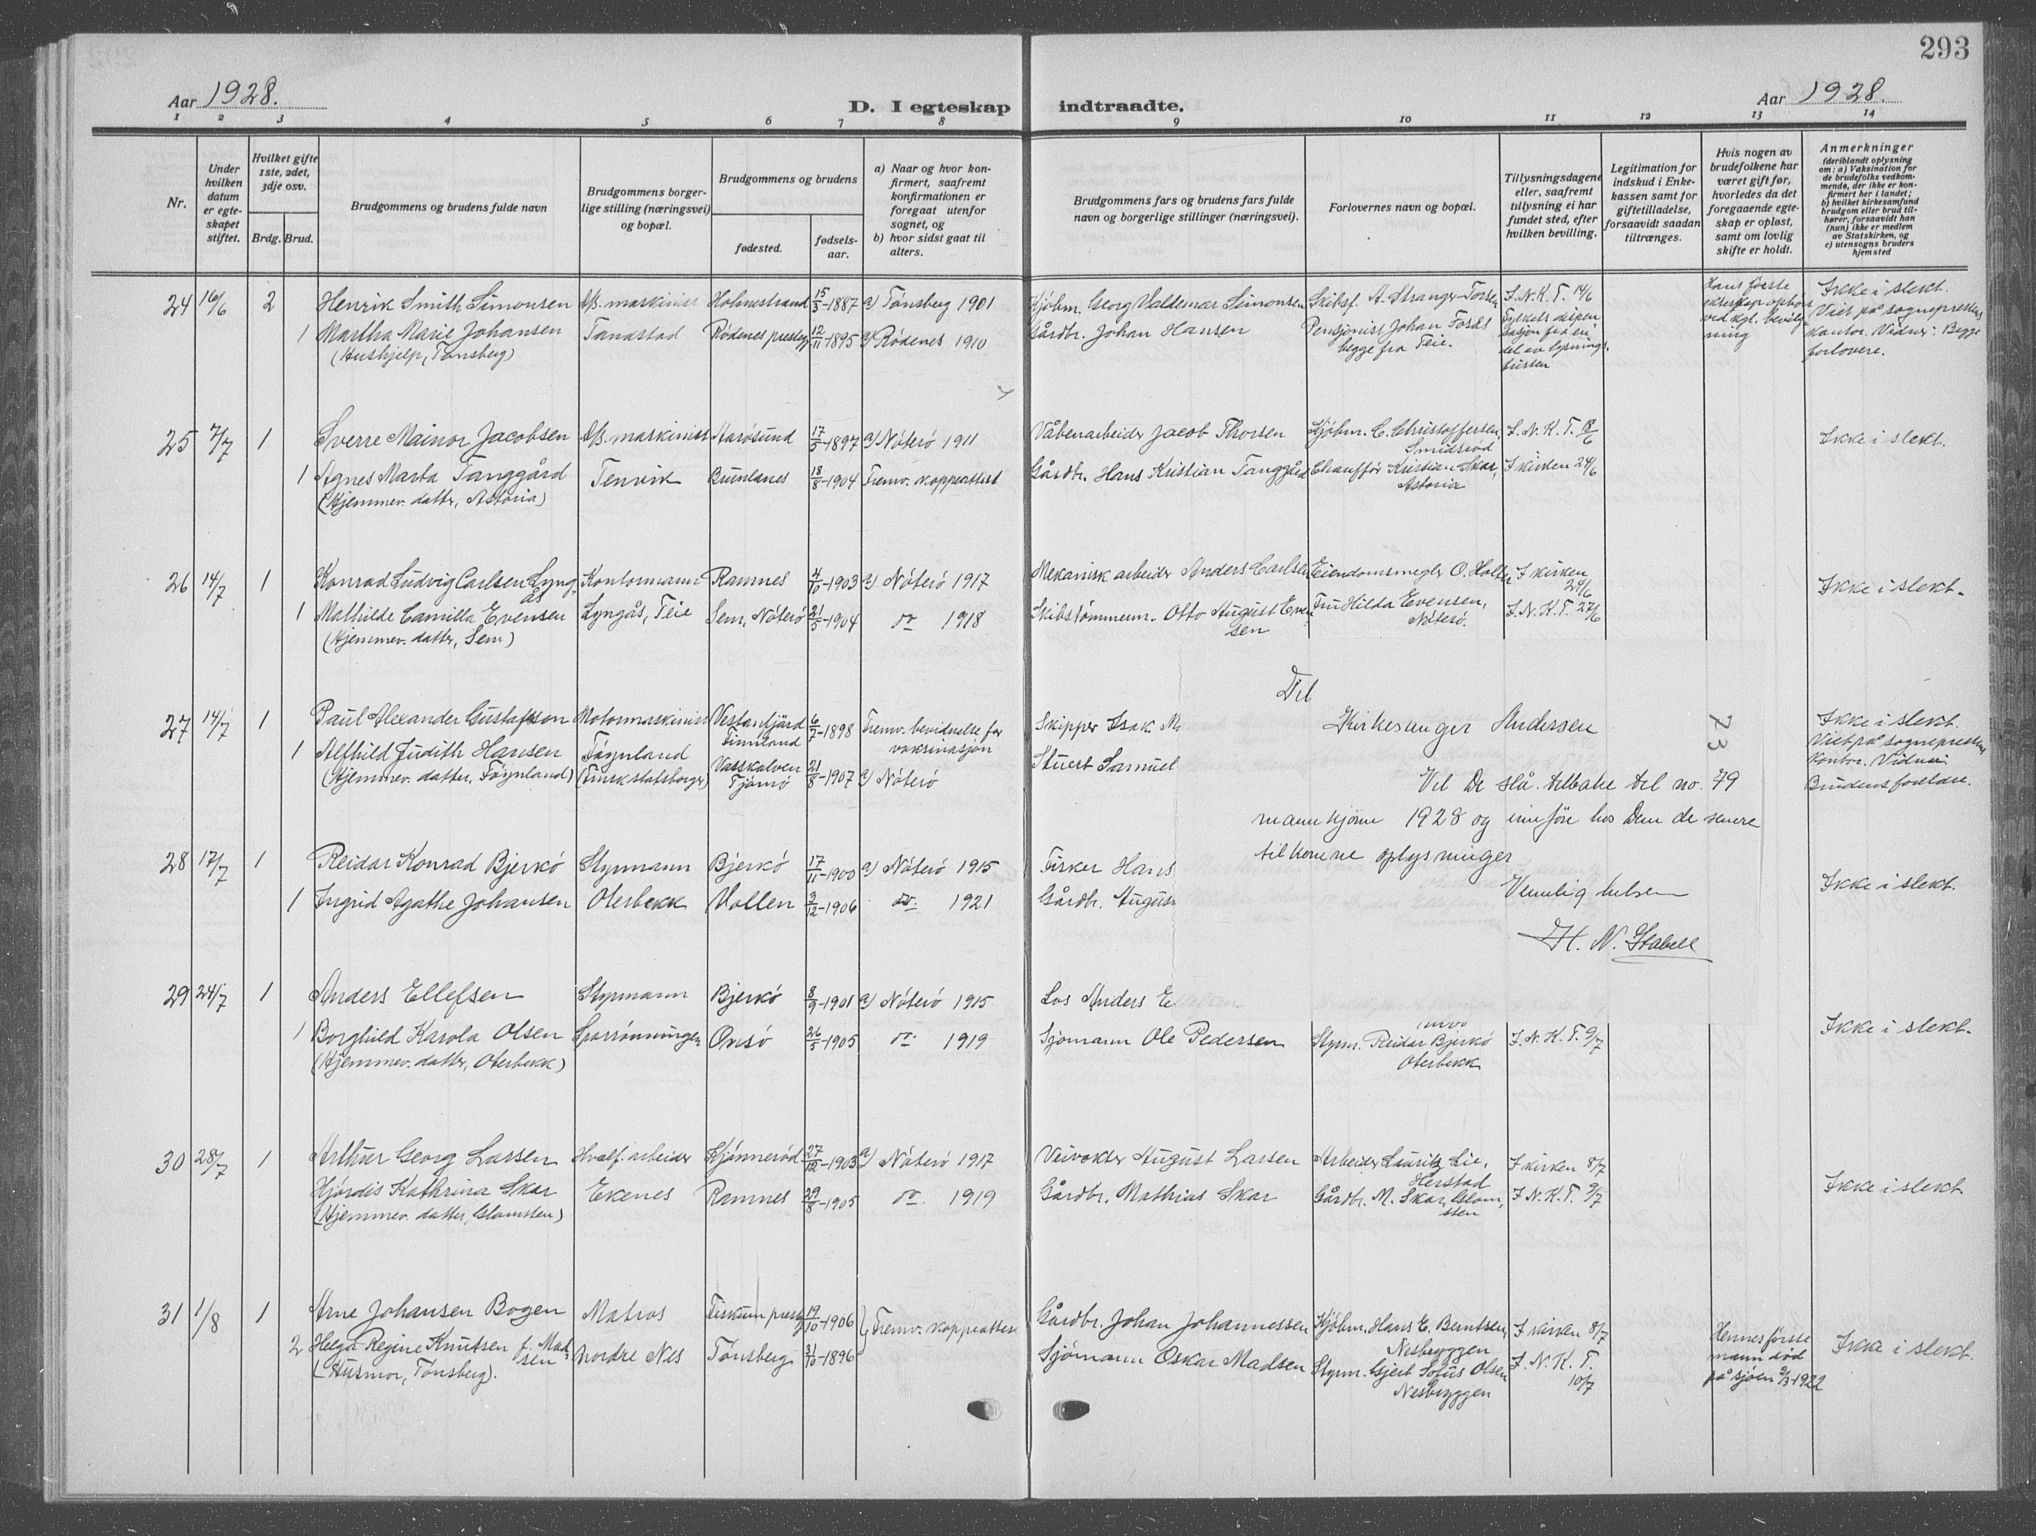 293
Aar 1928.
D. I egteskap indtraadte.
Aar 1928.
1 2 3 4 5 6 7 8 9 10 11 12 13 14
Nr.
Under hvilken datum er egteskapet stiftet.
Hvilket gifte 1ste, 2det, 3dje osv.
Brdg. Brud.
Brudgommens og brudens fulde navn
Brudgommens borgerlige stilling (næringsvei) og bopæl.
Brudgommens og brudens
fødested.
fødselsaar.
a) Naar og hvor konfirmert, saafremt konfirmationen er foregaat utenfor sognet, og
b) hvor sidst gaat til alters.
Brudgommens fars og brudens fars fulde navn og borgerlige stillinger (næringsvei).
Forlovernes navn og bopæl.
Tillysningsdagene eller, saafremt tillysning ei har fundet sted, efter hvilken bevilling.
Legitimation for indskud i Enkekassen samt for giftetilladelse, forsaavidt saadan tiltrænges.
Hvis nogen av brudefolkene har været gift før, hvorledes da det foregaaende egteskap er opløst, samt om lovlig skifte er holdt.
Anmerkninger
(deriblandt oplysning om: a) Vaksination for de brudefolks vedkommende, der ikke er konfirmert her i landet; b) hvilket kirkesamfund brudgom eller brud tilhører, forsaavidt han (hun) ikke er medlem av Statskirken, og c) utensogns bruders hjemsted
24 16/6 2 Henrik Smith Simonsen Ass. maskinist Holmestrand 15/3-1887 a) Tønsberg 1901 Kjøbm. Georg Valdemar Simonsen Skibsf. A. Stranger-Torsen I. N. K. T. 14/6 Hans første ekteskap opløst ved kgl. bevilgning Ikke i slekt.
1 Martha Marie Johansen Tandstad Rødenes prestegj 12/11-1895 a) Rødenes 1910 Gårdbr. Johan Hansen Pensjonist Johan Fosås Fylkets dispensasjon fra en del av lysningsfristen Viet på sogneprestens kontor. Vidner: Begge forlovere.
(Hushjelp, Tønsberg) begge fra Teie.
25 7/7 1 Sverre Mainor Jacobsen Ass. maskinist Aarøsund 17/5-1897 a) Nøterø 1911 Våbenarbeider Jacob Thorsen Kjøbm. C. Christoffersen, Smidsrød I. N. K. T. 18/6 Ikke i slekt.
1 Agnes Marta Tanggård Tenvik Burnlanes 18/8-1904 Fremv. koppeattest Gårdbr. Hans Kristian Tanggård Chauffør Kristian Skar, Astoria I kirken 24/6
(Hjemmev. datter, Astoria)
26 14/7 1 Konrad Ludvig Carlsen Lyngås Kontormann Ramnes 4/10-1903 a) Nøterø 1917 Mekanisk arbeider Anders Carlsen Eiendomsmegler O. Holter I kirken 24/6 Ikke i slekt.
1 Mathilde Camilla Evensen Lyngås, Teie Sem, Nøterø 21/5-1904 do 1918 Skibstømmerm. Otto August Evensen Fru Hilda Evensen, Nøterø. I. N. K. T. 27/6
(Hjemmev. datter, Sem)
27 14/7 1 Paul Alexander Gustafsson Motormaskinist Vestanfjärd Finnland 6/7-1898 Fremv. bevidnelse for vaksinasjon Skipper Isak M Ikke i slekt.
1 Alfhild Judith Hansen Føynland Vasskalven Tjømø 21/8-1907 a) Nøterø Stuert Samuel Viet på sogneprestens kontor. Vidner: Brudens foreldre.
(Hjemmev. datter. Føynland) (Finsk statsborger)
Til
Kirkesanger Andersen
73
Vil De slå tilbake til no. 79
mannkjønn 1928 og innføre hos Dem de senere
tilkomne oplysninger
Vennlig hilsen
H. N. Stabell
28 17/7 1 Reidar Konrad Bjerkø Styrmann Bjerkø 17/11-1900 a) Nøterø 1915 Fisker Hans
1 Ingrid Agathe Johansen Oterbekk Vollen 3/12-1906 do. 1921 Gårdbr. August Ikke i slekt.
29 24/7 1 Anders Ellefsen Styrmann Bjerkø 8/9-1901 a) Nøterø 1915 Los Anders E
1 Borghild Karola Olsen Sparrønningen Onsø 26/5-1905 do. 1919 Sjømann Ole Pedersen Styrm. Reidar Bjerkø Oterbekk I. N. K. T. 9/7 Ikke i slekt.
(Hjemmev. datter, Oterbekk)
30 28/7 1 Arthur Georg Larsen Hvalf. arbeider Kjønnerød 27/12-1903 a) Nøterø 1917 Veivokter August Larsen Arbeider Lauritz Lie, Herstad I kirken 8/7
Hjørdis Kathrina Skar Ekenes Ramnes 29/8-1905 do. 1919 Gårdbr. Mathias Skar Gårdbr. M. Skar, Glomsten I. N. K. T. 9/7 Ikke i slekt.
(Hjemmev. datter, Glomsten)
31 1/8 1 Arne Johansen Bogen Matros Fiskum prestegj 19/10-1906 Fremv. koppeatter Gårdbr. Johan Johannessen Kjøbm. Hans E. Berntsen, Nesbryggen I kirken 8/7 Hennes første mann død på sjøen 2/3-1922 Ikke i slekt.
2 Helga Regine Knutsen f. Madsen Nordre Nes Tønsberg 31/10-1896 Sjømann Oskar Madsen Styrm. Gjert Sofus Olsen Nesbryggen I. N. K. T. 10/7
(Husmor, Tønsberg).